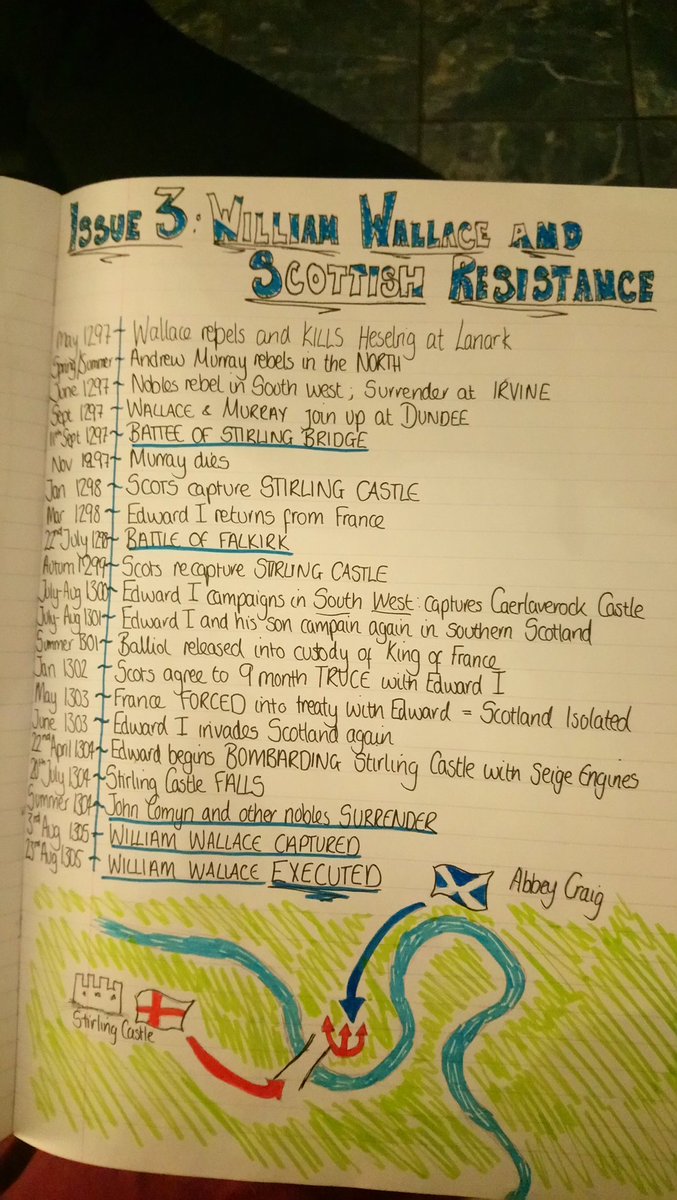 ISSUE 3: WILLIAM WALLACE AND
SCOTTISH RESISTANCE
May 1297 Wallace rebels and KILLS Heselrig at Lanark
Spring/Summer Andrew Murray rebels in the NORTH
June 1297 Nobles rebel in South west; Surrender at IRVINE
Sept 1297 WALLACE & MURRAY join up at DUNDEE
11th Sept 1297 BATTLE OF STIRLING BRIDGE
Nov 1297 Murray dies
Jan 1298 SCOTS capture STIRLING CASTLE
Mar 1298 Edward I returns from France
22nd July 1298 BATTLE OF FALKIRK
Autumn 1299 Scots recapture STIRLING CASTLE
July-Aug 1300 Edward I campaigns in South West: captures Caerlaverock Castle
July-Aug 1301 Edward I and his son campain again in southern Scotland
Summer 1301 Balliol released into custody of King of France
Jan 1302 Scots agree to 9 month TRUCE with Edward I
May 1303 France FORCED into treaty with Edward = Scotland Isolated
June 1303 Edward I invades Scotland again
22nd April 1304 Edward begins BOMBARDING Stirling Castle with Seige Engines
20th July 1304 Stirling Castle FALLS
Summer 1304 John Comyn and other nobles SURRENDER
3rd Aug 1305 WILLIAM WALLACE CAPTURED
23rd Aug 1305 WILLIAM WALLACE EXECUTED
Abbey Craig
Stirling Castle